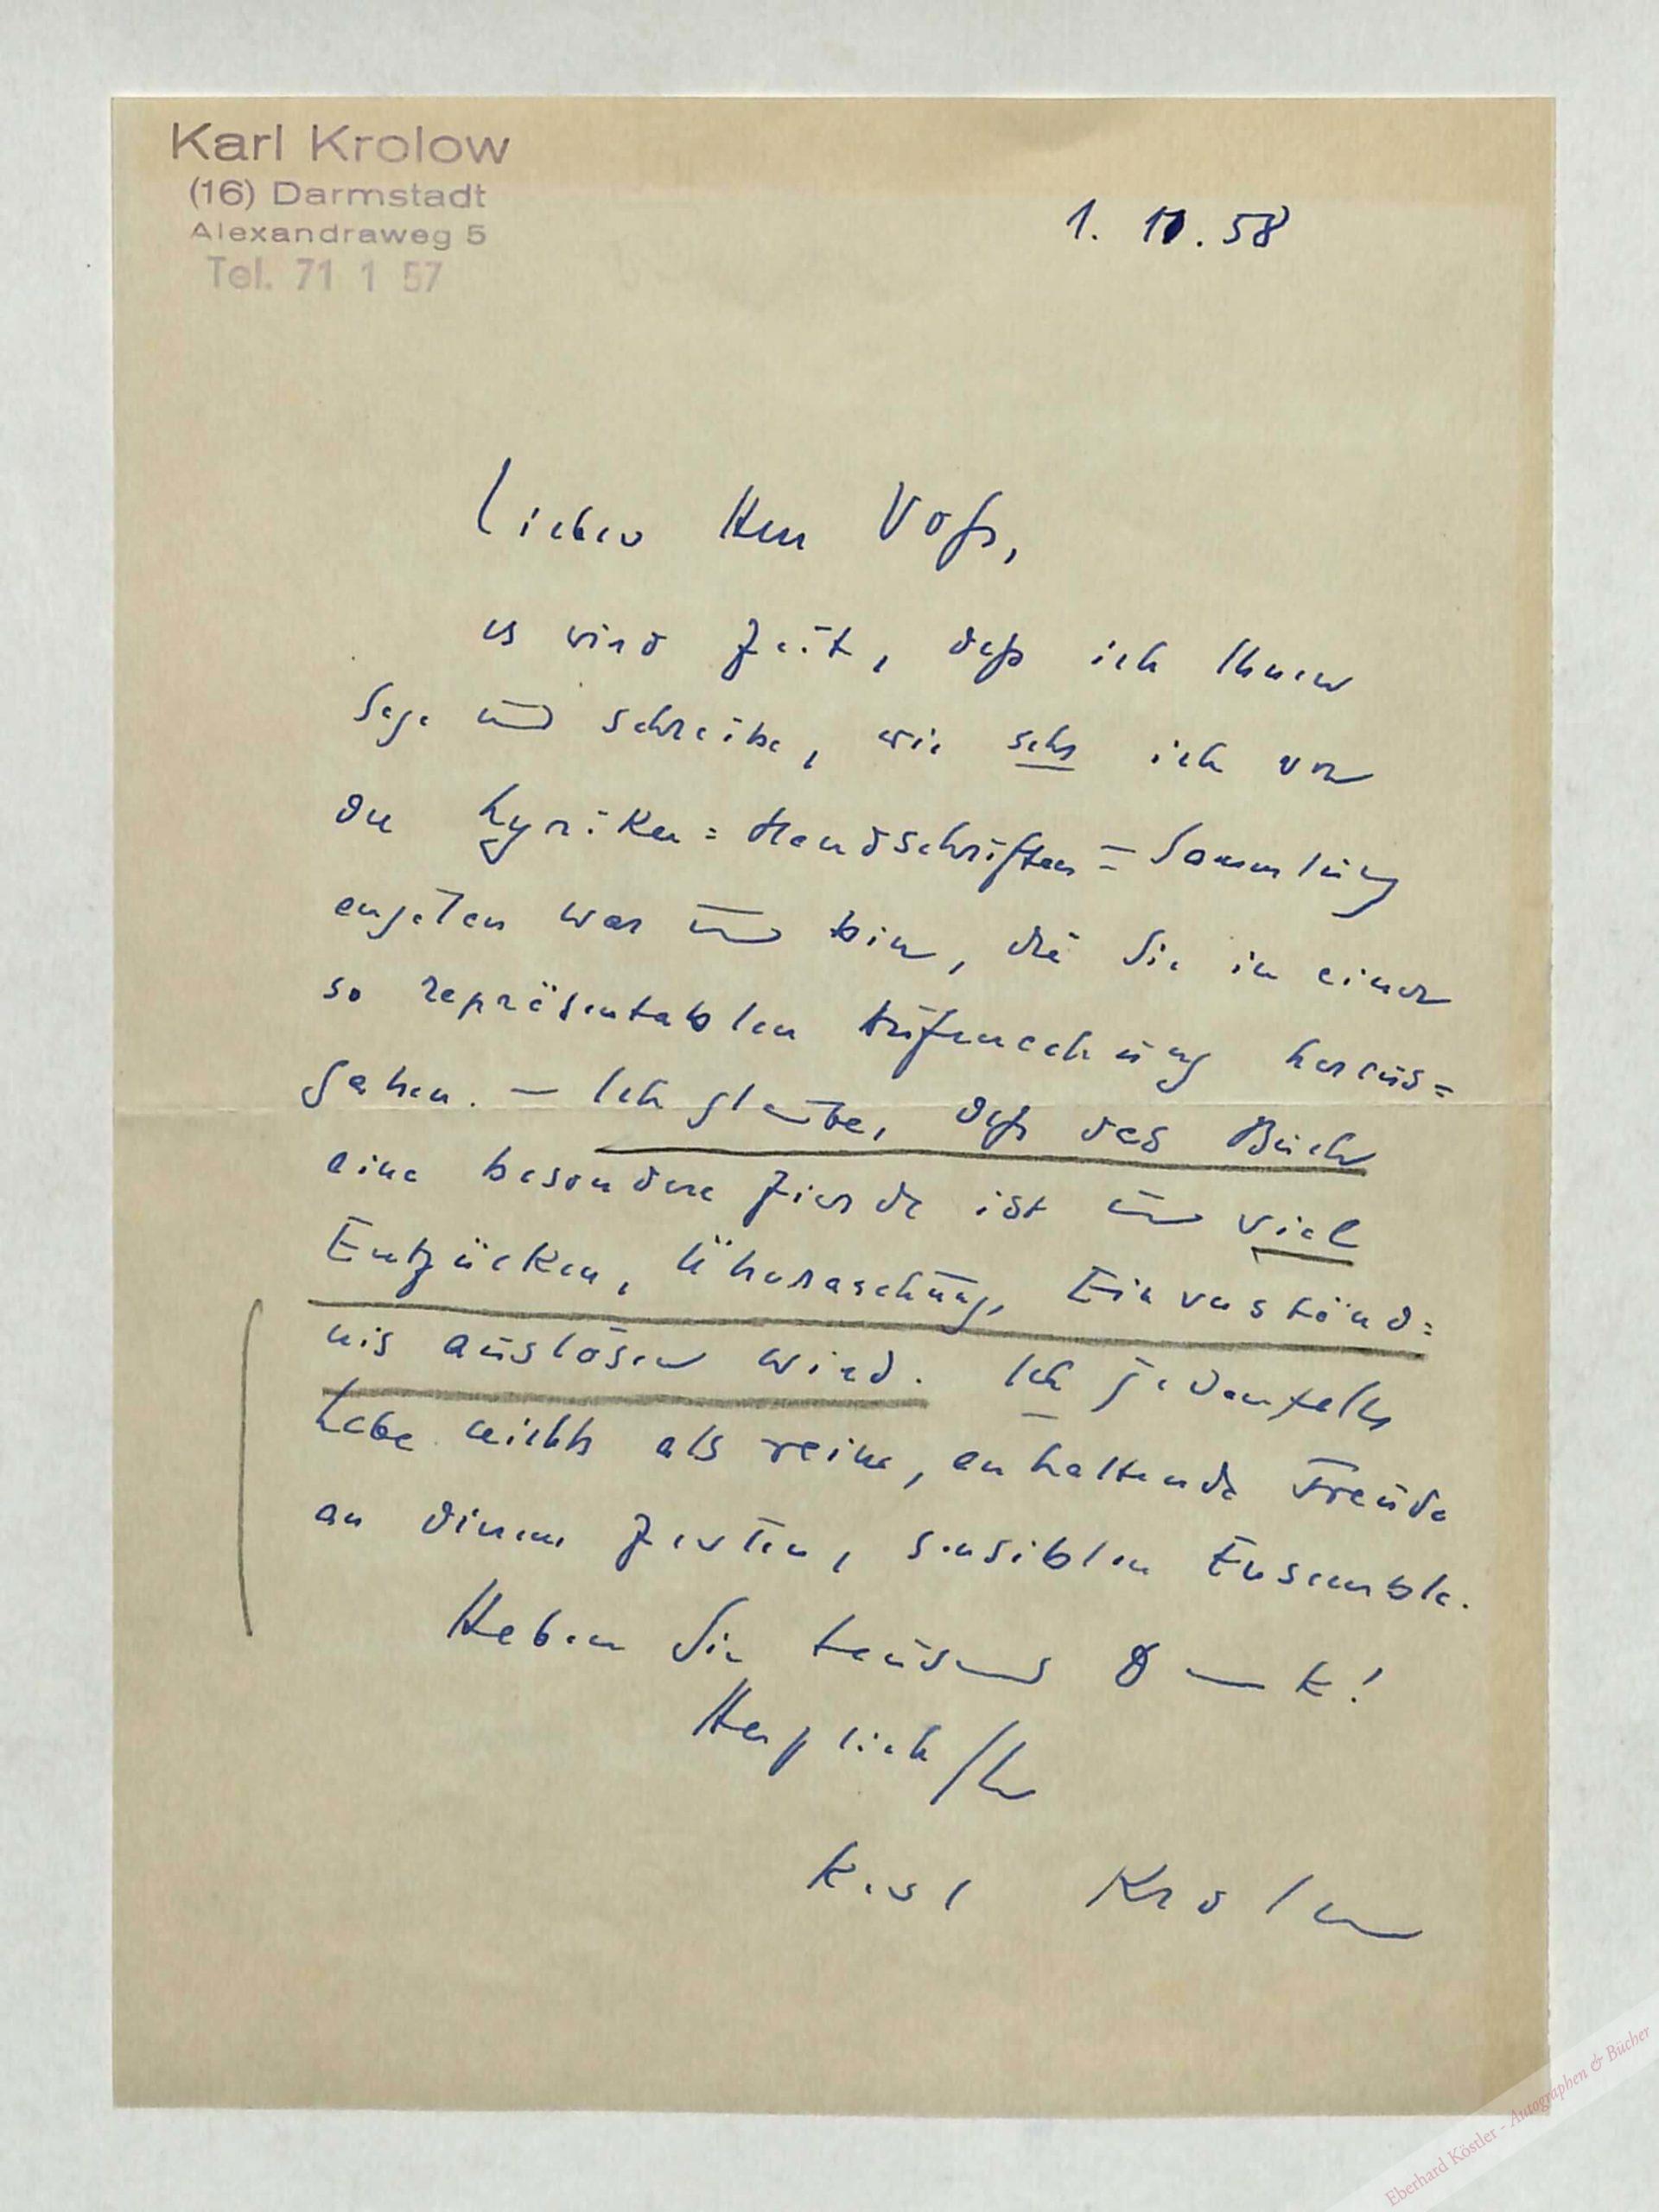 Karl Krolow
(16) Darmstadt
Alexandraweg 5
Tel. 71 1 57
1. 10. 58
Lieber Herr Voß,
es wird Zeit, daß ich Ihnen
sage und schreibe, wie sehr ich von
der Lyriker=Handschriften=Sammlung
angetan war und bin, die Sie in einer
so repräsentablen Aufmachung heraus=
gaben. – Ich glaube, daß das Buch
eine besondere Zierde ist und viel
Entzücken, Überraschung, Einverständ=
nis auslösen wird. Ich jedenfalls
habe nichts als reine, anhaltende Freude
an diesem zarten, sensiblen Ensemble.
Haben Sie tausend Dank!
Herzlich / Ihr
Karl Krolow
Eberhard Köstler - Autographen & Bücher